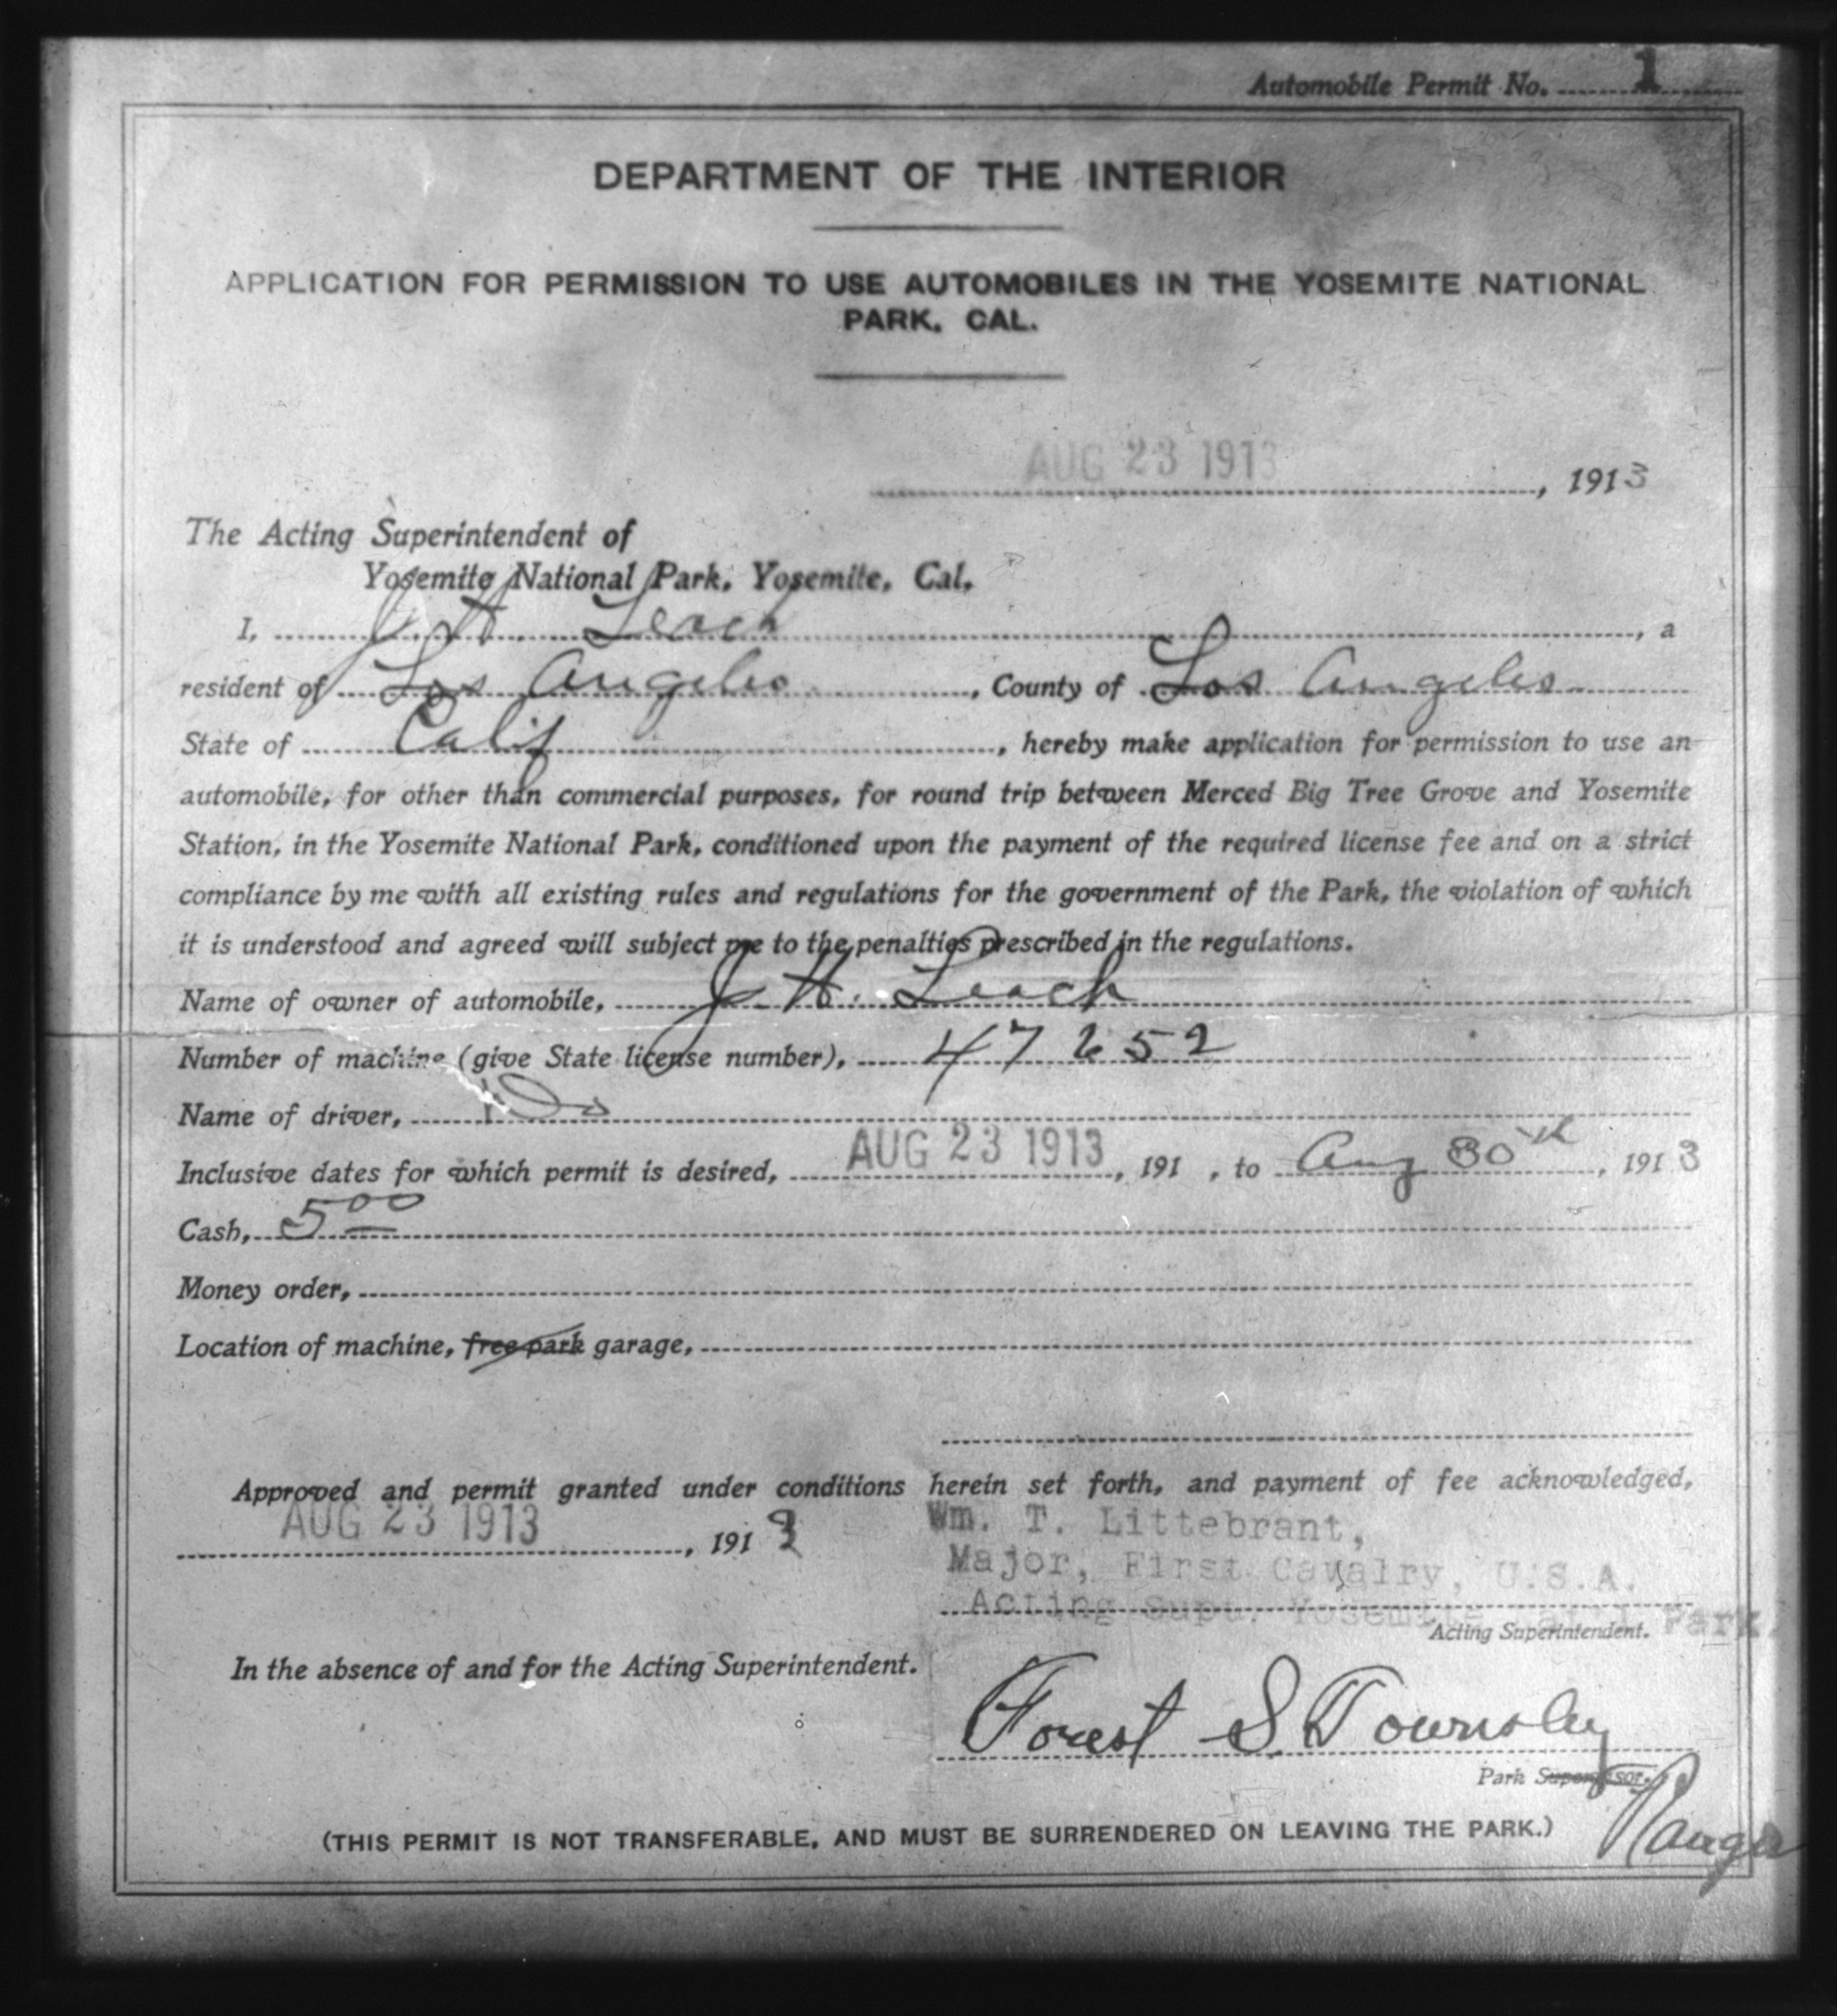 Automobile Permit No. 1
DEPARTMENT OF THE INTERIOR
APPLICATION FOR PERMISSION TO USE AUTOMOBILES IN THE YOSEMITE NATIONAL
PARK, CAL.
AUG 23 1913, 1913
The Acting Superintendent of
Yosemite National Park, Yosemite, Cal.
I, J. H. Leach, a
resident of Los Angeles, County of Los Angeles
State of Calif, hereby make application for permission to use an
automobile, for other than commercial purposes, for round trip between Merced Big Tree Grove and Yosemite
Station, in the Yosemite National Park, conditioned upon the payment of the required license fee and on a strict
compliance by me with all existing rules and regulations for the government of the Park, the violation of which
it is understood and agreed will subject me to the penalties prescribed in the regulations.
Name of owner of automobile, J. H. Leach
Number of machine (give State license number), 47252
Name of driver, Do
Inclusive dates for which permit is desired, AUG 23 1913, 191 , to Aug 30th, 1913
Cash, 5 00
Money order,
Location of machine, free park garage,
Approved and permit granted under conditions herein set forth, and payment of fee acknowledged,
AUG 23 1913, 1913
Wm. T. Littebrant,
Major, First Cavalry, U.S.A.
Acting Supt. Yosemite Nat'l Park.
Acting Superintendent.
In the absence of and for the Acting Superintendent.
Forest S. Townsley
Park Supervisor.
Ranger
(THIS PERMIT IS NOT TRANSFERABLE, AND MUST BE SURRENDERED ON LEAVING THE PARK.)